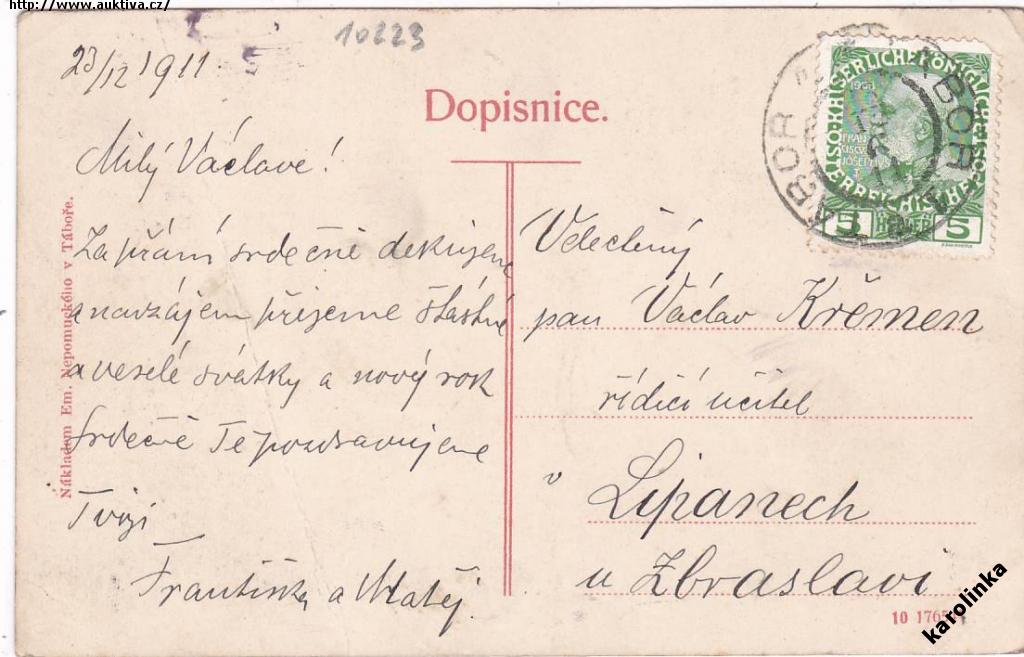 http://www.auktiva.cz/
10223
23/12 1911.
Dopisnice.
Milý Václave!
Za přání srdečně děkujeme
a navzájem přejeme šťastné
a veselé svátky a nový rok
Srdečně Tě pozdravujeme
Tvoji
Františka a Matěj
Velectěný
pan Václav Křemen
řídící učitel
v Lipanech
u Zbraslavi
Nákladem Em. Nepomuckého v Táboře.
TÁBOR TÁBOR
KAISERLICHE KÖNIGLICHE
ÖSTERREICHISCHE
1908
5 HELLER 5
10 1765
karolinka